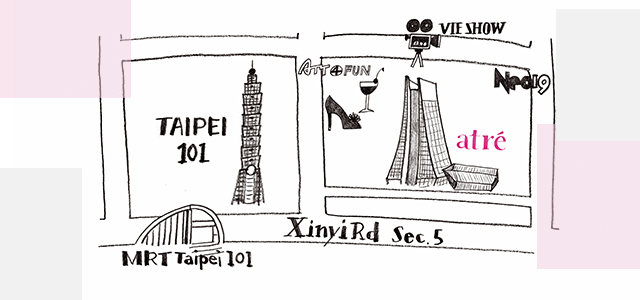 VIE SHOW
ATT 4 FUN
Neo19
TAIPEI
101
atré
XinyiRd Sec.5
MRT Taipei 101